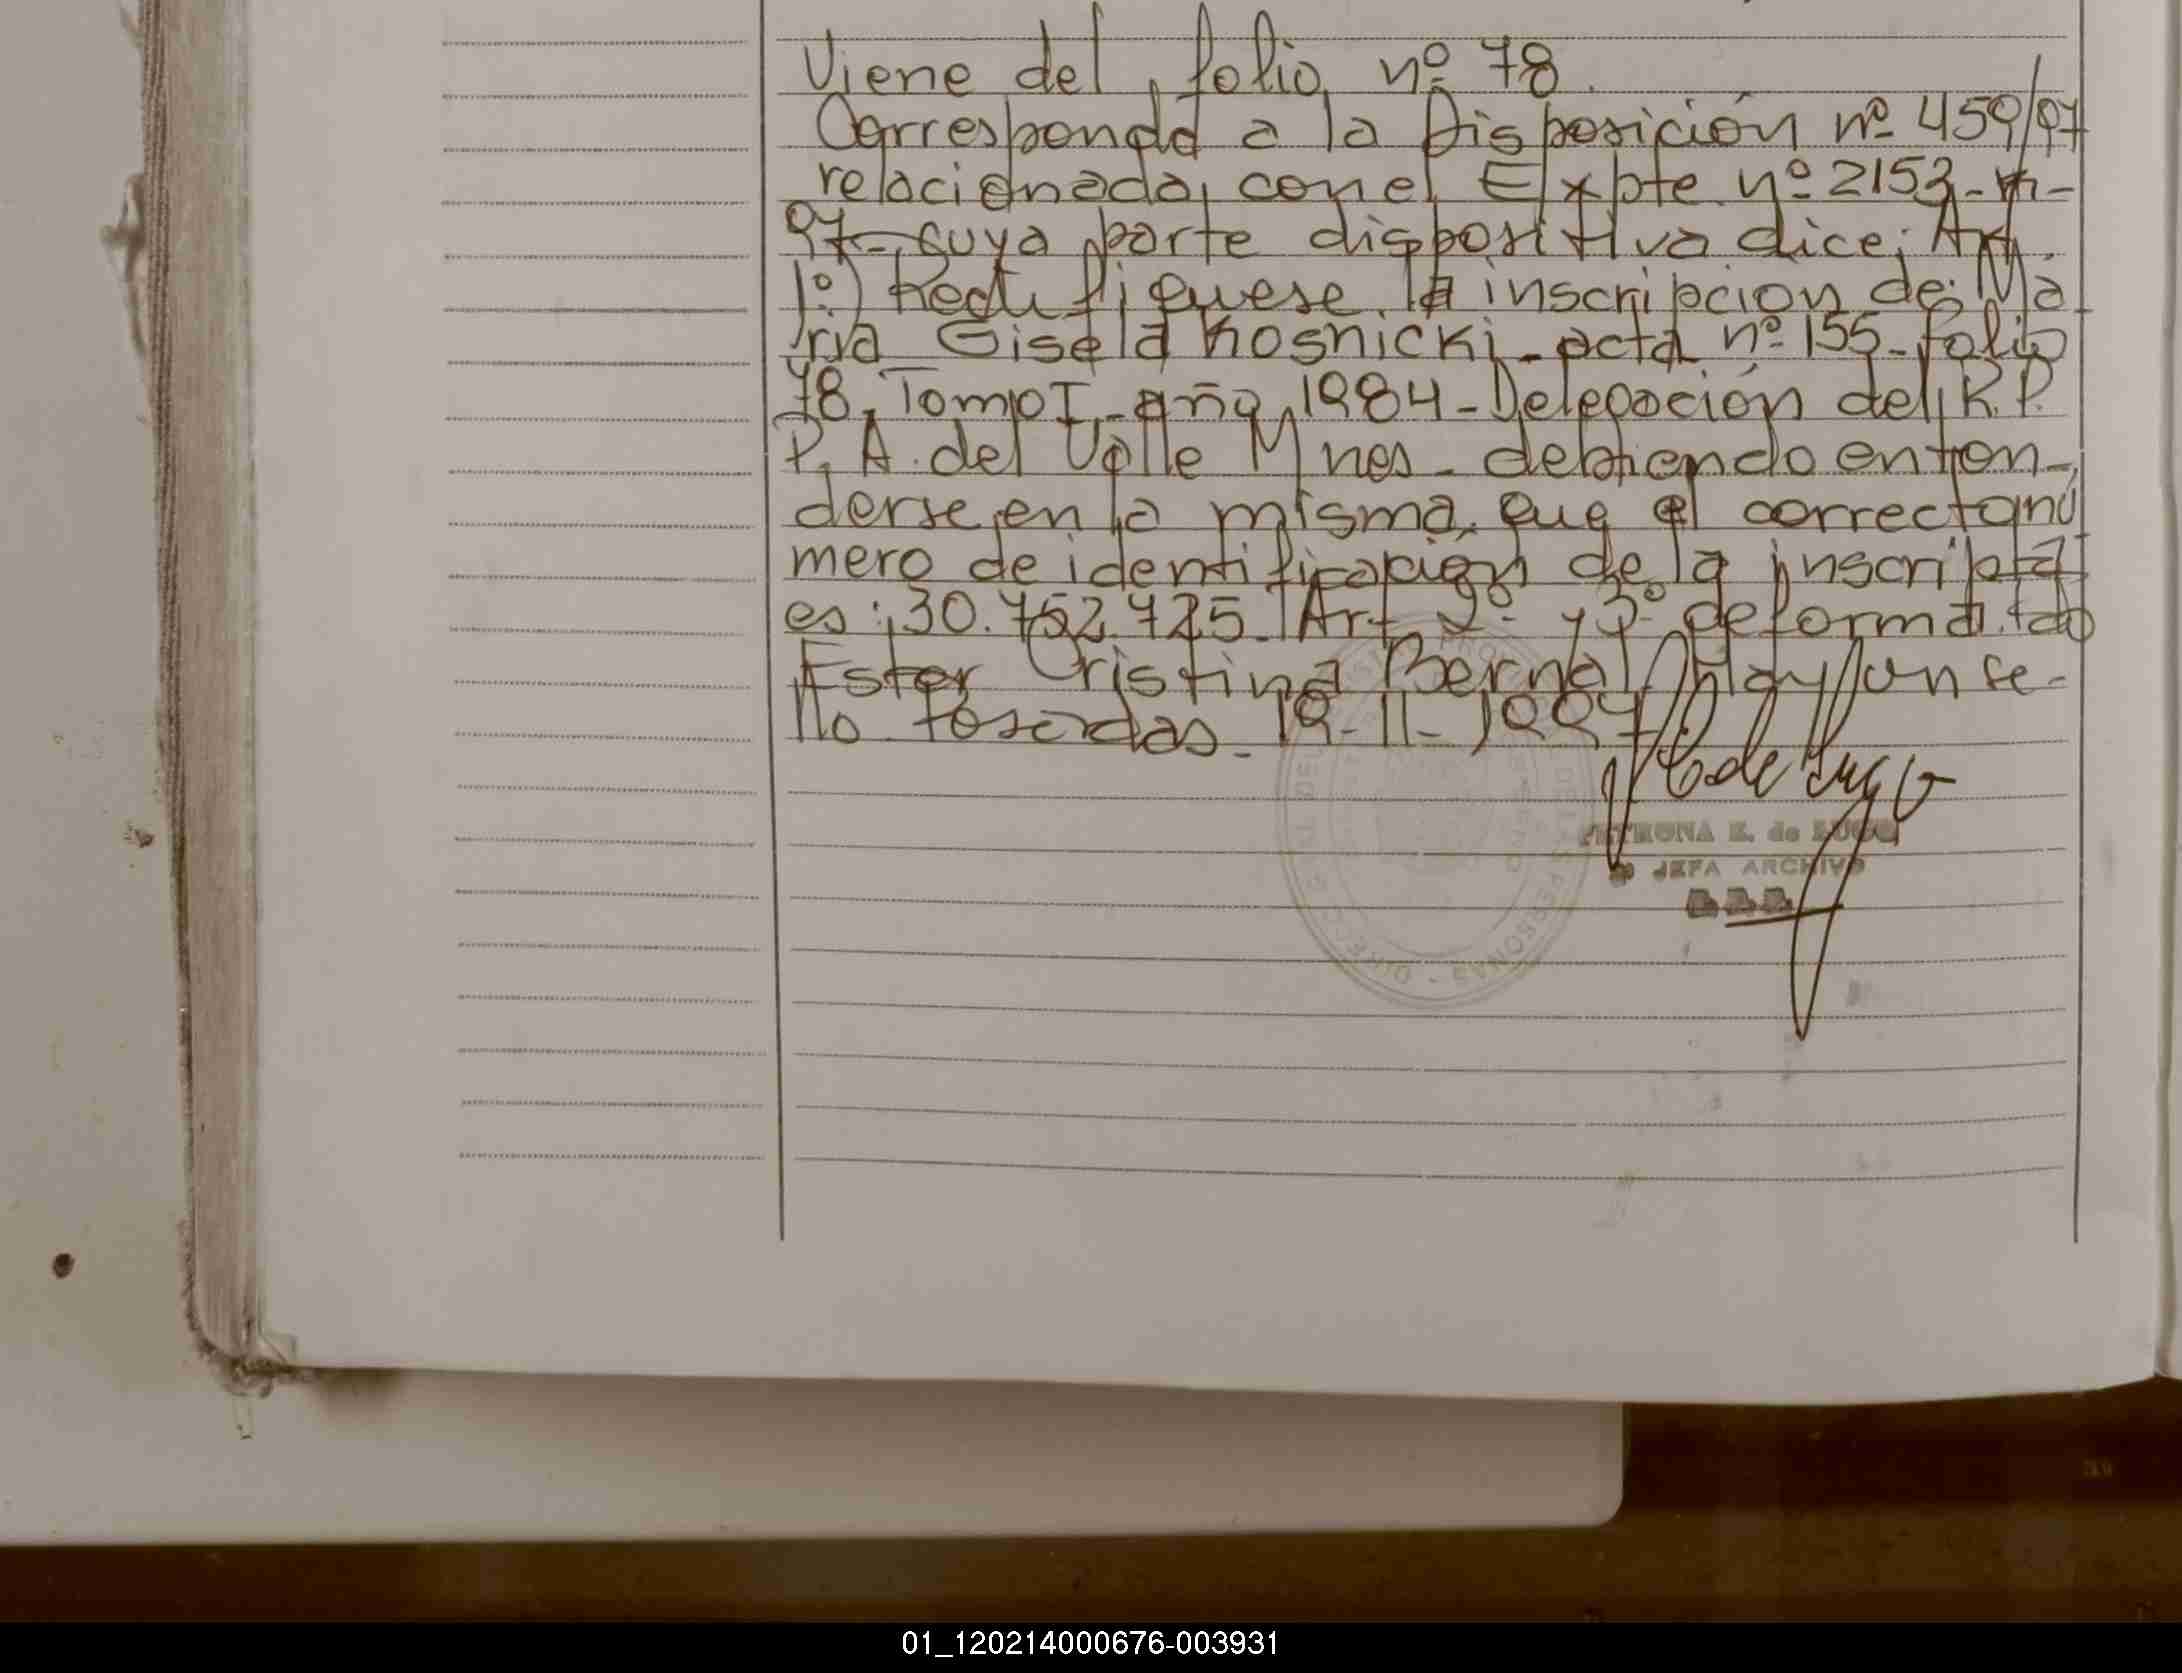 Viene del folio nº 78.
Corresponde a la Disposición nº 459/97
relacionada con el Expte nº 2153-M-
97- cuya parte dispositiva dice: Art.
1º) Rectifíquese la inscripcion de: Ma
ria Gisela Kosnicki - acta nº 155 - folio
78. Tomo I - año 1984 - Delegación del R.P.
P. A. del Valle Mnes - debiendo enten-
derse en la misma que el correcto nú
mero de identificación de la inscripta
es: 30.752.725. Art 2º y 3º de forma. fdo
Ester Cristina Bernal. Hay un se-
llo Posadas - 19-11-1997
PETRONA E. de LUGO
JEFA ARCHIVO
DIRECC GRAL DEL REGISTRO PROVINCIAL DE LAS PERSONAS